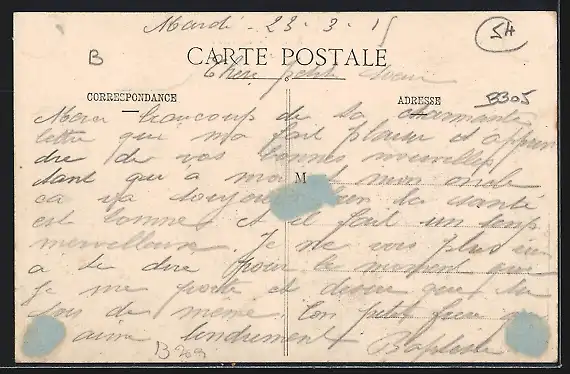 Mardi - 23 - 3 - 15
54
B
CARTE POSTALE
Chère petite Soeur
CORRESPONDANCE
ADRESSE
B305
Merci beaucoup de ta charmante
lettre qui m'a fait plaisir d'appren
dre de vos bonnes nouvelles
tant qu'a moi et mon oncle
M
ca va toujours bien la santé
est bonne et il fait un temp
merveilleux. Je ne vois plus
a te dire pour le moment que
je me porte et désire que tu
sois de même. Ton petit frère qui
t'aime tendrement Baptiste
B209